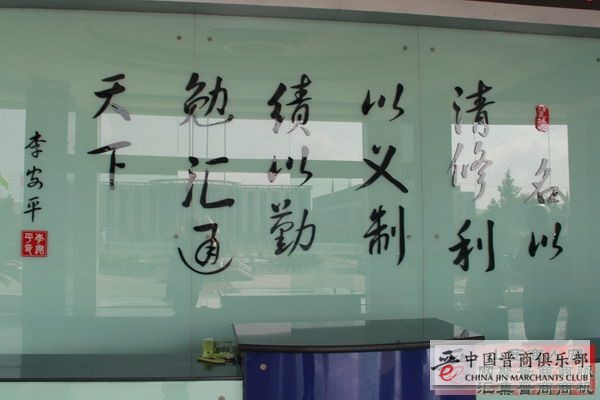 名以
清修利
以义制
绩以勤
勉汇通
天下
李安平
晋 中国晋商俱乐部
CHINA JIN MARCHANTS CLUB